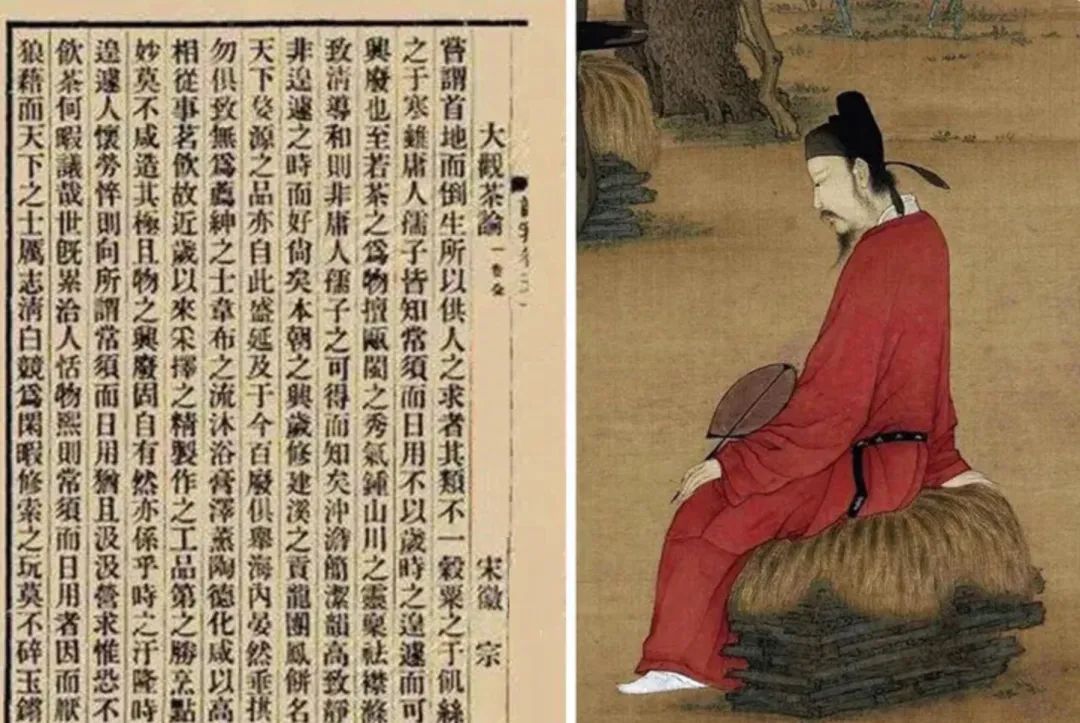 大觀茶論 一卷全 宋徽宗
嘗謂首地而倒生所以供人之求者其類不一穀粟之于飢絲
之于寒雖庸人孺子皆知常須而日用不以歲時之遑遽而可
興廢也至若茶之爲物擅甌閩之秀氣鍾山川之靈稟祛襟滌
致清導和則非庸人孺子之可得而知矣沖澹簡潔韻高致靜
非遑遽之時而好尚矣本朝之興歲修建溪之貢龍團鳳餅名
天下婺源之品亦自此盛延及于今百廢俱舉海內晏然垂拱
勿俱致無爲薦紳之士韋布之流沐浴膏澤薰陶德化咸以高
相從事茗飲故近歲以來采擇之精製作之工品第之勝烹點
妙莫不咸造其極且物之興廢固自有然亦係乎時之汙隆時
遑遽人懷勞悴則向所謂常須而日用猶且汲汲營求惟恐不
飲茶何暇議哉世既累洽人恬物熙則常須而日用者因而厭
狼藉而天下之士厲志清白競爲閑暇修索之玩莫不碎玉鏘